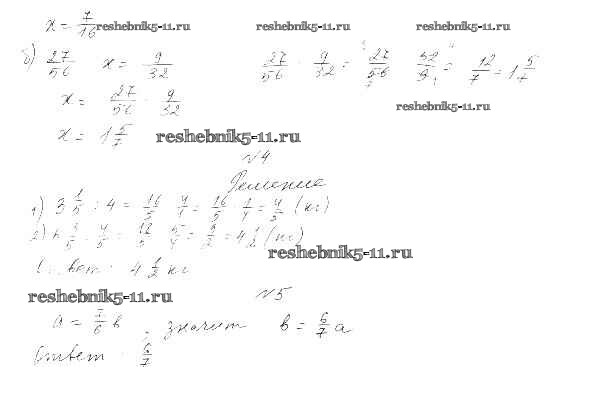 x = 7/16 reshebnik5-11.ru reshebnik5-11.ru reshebnik5-11.ru
б) 27/56 x = 9/32 27/56 : 9/32 = 27/56 · 32/9 = 12/7 = 1 5/7
x = 27/56 : 9/32
reshebnik5-11.ru
x = 1 5/7 reshebnik5-11.ru
№4
Решение
1) 3 1/5 : 4 = 16/5 : 4/1 = 16/5 · 1/4 = 4/5 (кг)
2) 3/5 : 4/5 = 18/5 · 5/4 = 9/2 = 4 1/2 (кг)
reshebnik5-11.ru
Ответ: 4 1/2 кг
reshebnik5-11.ru №5
a = 7/6 b, значит b = 6/7 a
Ответ: 6/7